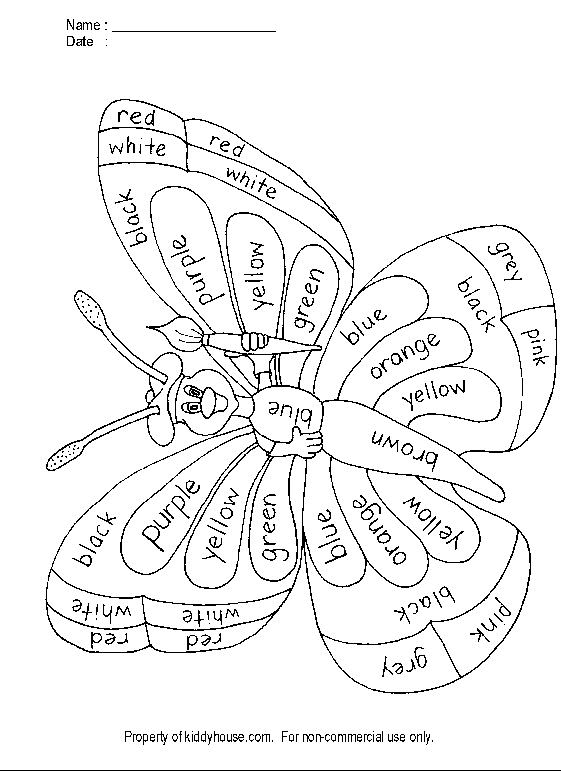 Name :
Date :
red
red
white
white
black
purple
yellow
green
grey
black
pink
blue
orange
yellow
blue
brown
black
purple
yellow
green
blue
orange
yellow
white
white
red
red
black
pink
grey
Property of kiddyhouse.com. For non-commercial use only.